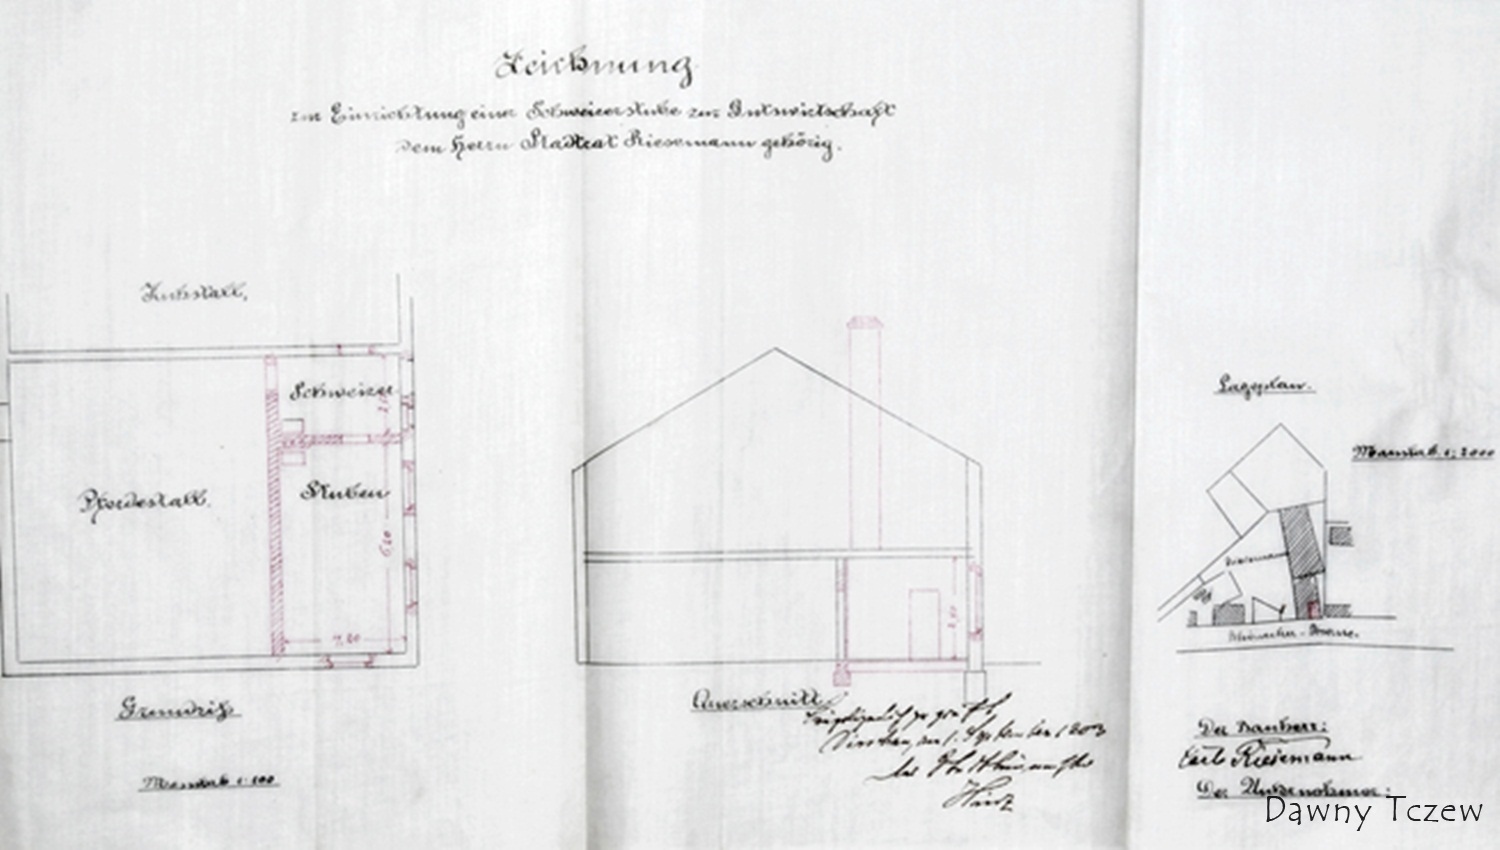 Zeichnung
zur Einrichtung einer Schweizerstube zur Gutswirtschaft
dem Herrn Stadtrat Riesemann gehörig.
Kuhstall,
Schweizer
Pferdestall.
Stuben
6,20
Grundriß
Masstab 1:100
Querschnitt
Dirschau, den 1. September
Lageplan.
Masstab 1:2000
Der Bauherr:
Carl Riesemann
Der Unternehmer:
Dawny Tczew